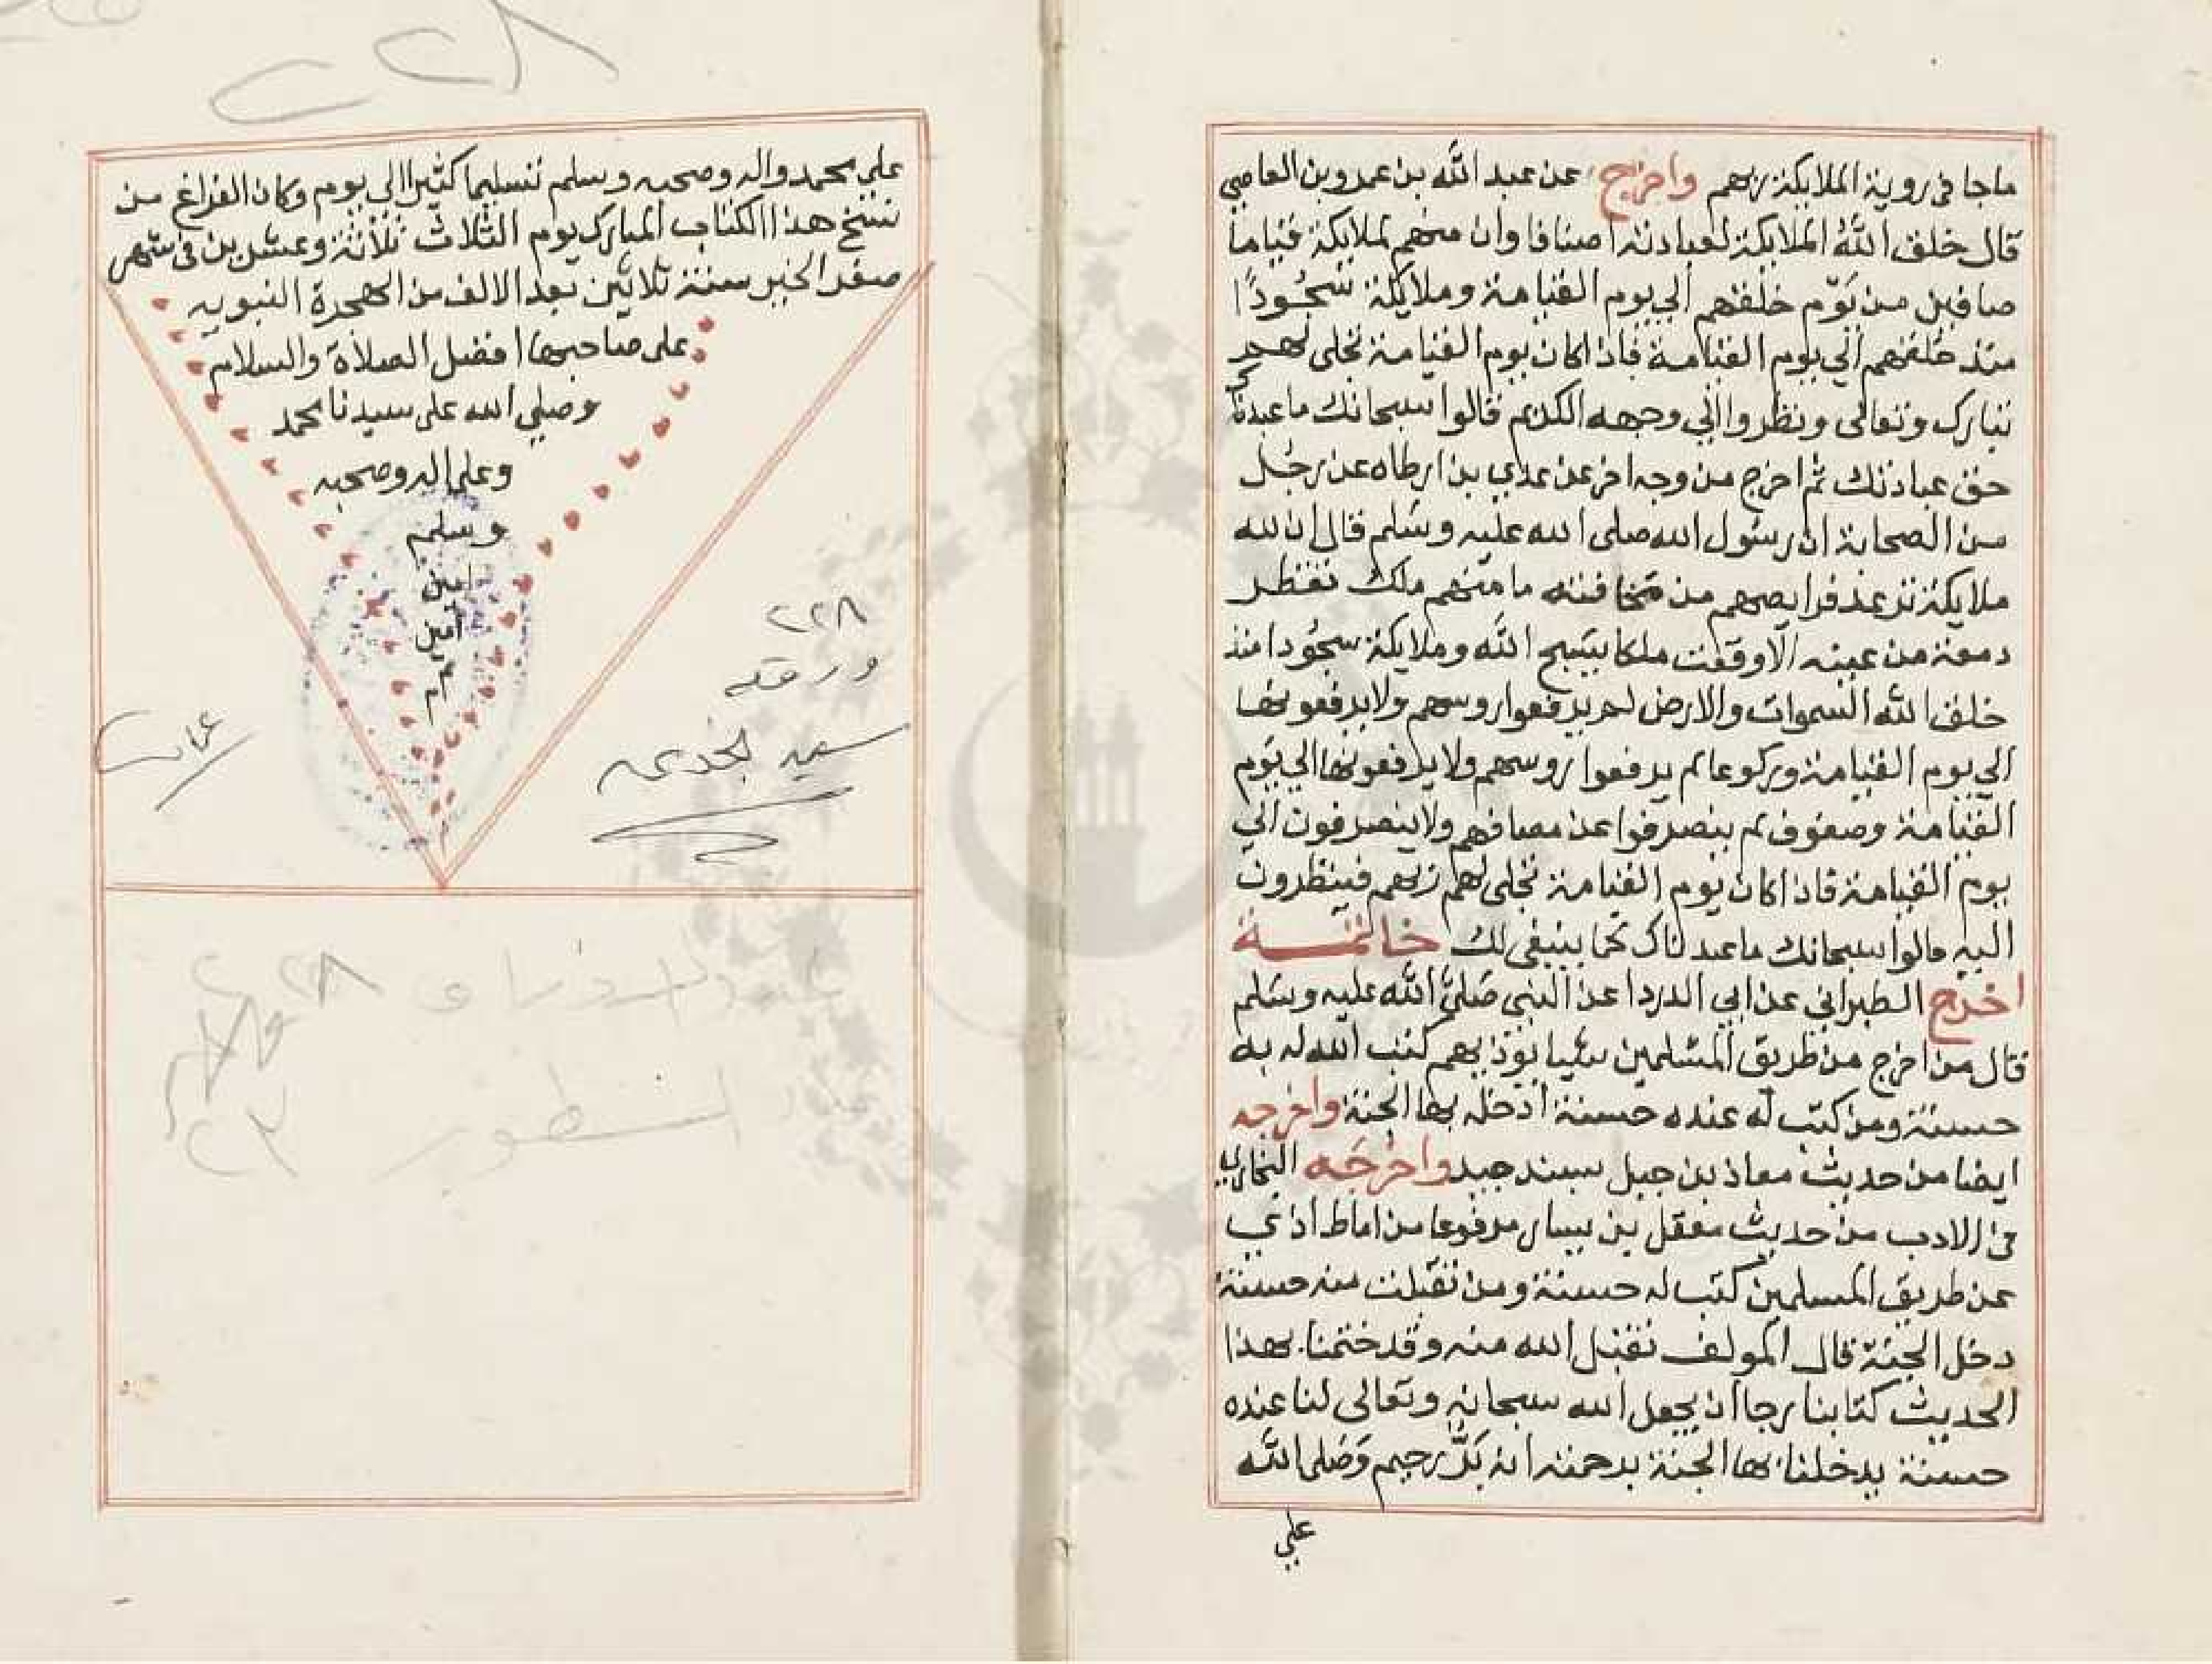 ماجا في روية الملايكة ربهم واخرج عن عبد الله بن عمرو بن العاصي
قال خلق الله الملايكة لعبادته اصنافا وان منهم لملايكة قياما
صافين من يوم خلقهم الي يوم القيامة وملايكة سجودا
منذ خلقهم الي يوم القيامة فاذا كان يوم القيامة تجلى لهم
تبارك وتعالى ونظروا الي وجهه الكريم قالوا سبحانك ما عبدناك
حق عبادتك ثم اخرج من وجه اخر عن عدي بن ارطاه عن رجل
من الصحابة ان رسول الله صلى الله عليه وسلم قال ان لله
ملايكة ترعد فرايصهم من مخافته ما منهم ملك تقطر
دمعة من عينه الا وقعت ملكا يسبح الله وملايكة سجودا منذ
خلق الله السموات والارض لم يرفعوا روسهم ولا يرفعونها
الي يوم القيامة وركوعا لم يرفعوا روسهم ولا يرفعونها الي يوم
القيامة وصفوف لم ينصرفوا عن مصافهم ولا ينصرفون الي
يوم القيامة فاذا كان يوم القيامة تجلى لهم ربهم فينظرون
اليه قالوا سبحانك ما عبدناك كما ينبغي لك خاتمة
اخرج الطبراني عن ابي الدردا عن النبي صلى الله عليه وسلم
قال من اخرج من طريق المسلمين شيا يوذيهم كتب الله له به
حسنة ومن كتب له عنده حسنة ادخله بها الجنة واخرجه
ايضا من حديث معاذ بن جبل بسند جيد واخرجه البخاري
في الادب من حديث معقل بن يسار مرفوعا من اماط اذي
عن طريق المسلمين كتب له حسنة ومن تقبلت منه حسنة
دخل الجنة قال المولف تقبل الله منه وقد ختمنا بهذا
الحديث كتابنا رجا ان يجعل الله سبحانه وتعالى لنا عنده
حسنة يدخلنا بها الجنة برحمته انه بر رحيم وصلى الله
علي
علي محمد واله وصحبه وسلم تسليما كثيرا الي يوم وكان الفراغ من
نسخ هذا الكتاب المبارك يوم الثلاث ثلاثة وعشرين في شهر
صفر الخير سنة ثلاثين بعد الالف من الهجرة النبويه
على صاحبها افضل الصلاة والسلام
وصلي الله على سيدنا محمد
وعلى اله وصحبه
وسلم
امين
امين
٢٢٨
ورقه